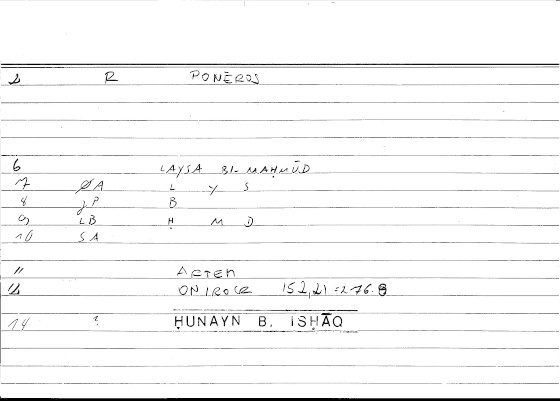 2 R PONĒROS
6 LAYSA BI- MAḤMŪD
7 ØA L Y S
8 jP B
9 LB Ḥ M D
10 SA
11 ARTEM
12 ONIROCR 152,21 = 276.8
14 ? ḤUNAYN B. ISḤĀQ